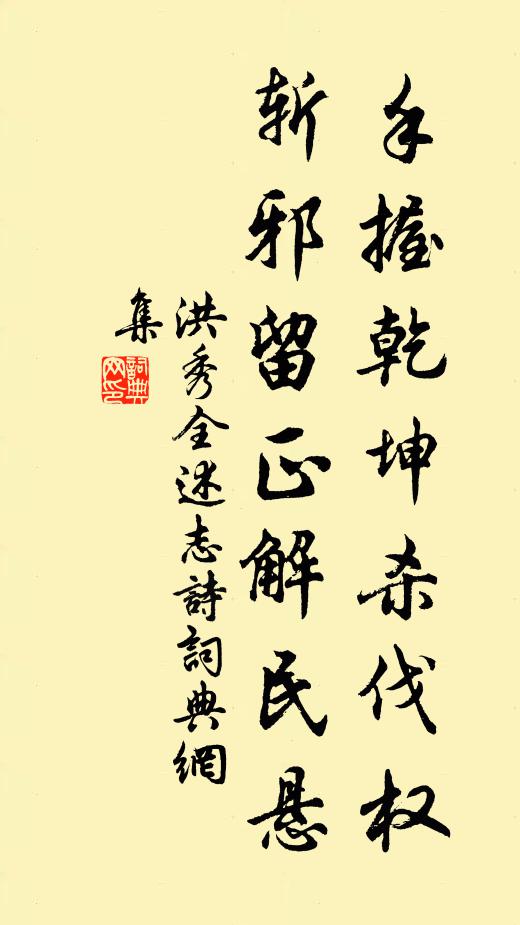 手握乾坤杀伐权
斩邪留正解民悬
洪秀全述志詩詞典網
集
詞典
网印